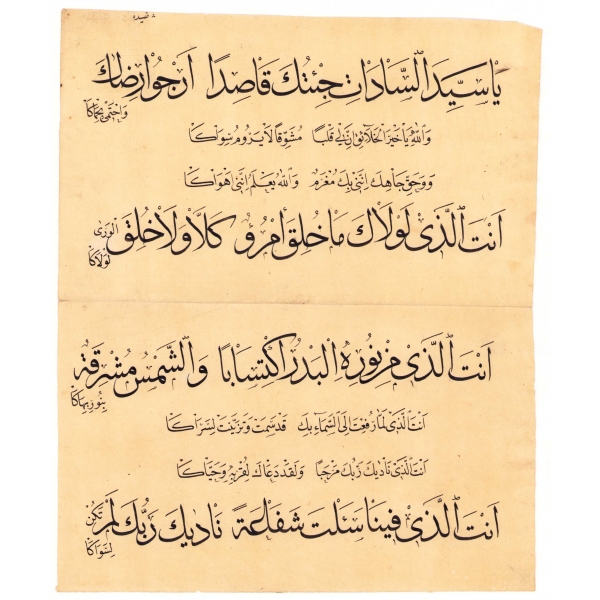 قصيده
يَا سَيِّدَ السَّادَاتِ جِئْتُكَ قَاصِدًا اَرْجُوا رِضَاكَ وَاَحْتَمِى بِحِمَاكَا
وَاللهِ يَا خَيْرَ الْخَلَائِقِ اِنَّ لِى قَلْبًا مَشُوقًا لَا يَرُومُ سِوَاكَا
وَوَحَقِّ جَاهِكَ اِنَّنِى بِكَ مُغْرَمٌ وَاللهُ يَعْلَمُ اِنَّنِى اَهْوَاكَا
اَنْتَ الَّذِى لَوْلَاكَ مَا خُلِقَ امْرُؤٌ كَلَّا وَلَا خُلِقَ الْوَرٰى لَوْلَاكَا
اَنْتَ الَّذِى مِنْ نُورِهِ الْبَدْرُ اكْتَسَا وَالشَّمْسُ مُشْرِقَةٌ بِنُورِ بَهَاكَا
اَنْتَ الَّذِى لَمَّا رُفِعْتَ اِلَى السَّمَاءِ بِكَ قَدْ سَمَتْ وَتَزَيَّنَتْ لِسُرَاكَا
اَنْتَ الَّذِى نَادَيكَ رَبُّكَ مَرْحَبًا وَلَقَدْ دَعَاكَ لِقُرْبِهِ وَحَيَّاكَا
اَنْتَ الَّذِى فِينَا سَئَلْتَ شَفَاعَةً نَادَيكَ رَبُّكَ لَمْ تَكُنْ لِسِوَاكَا